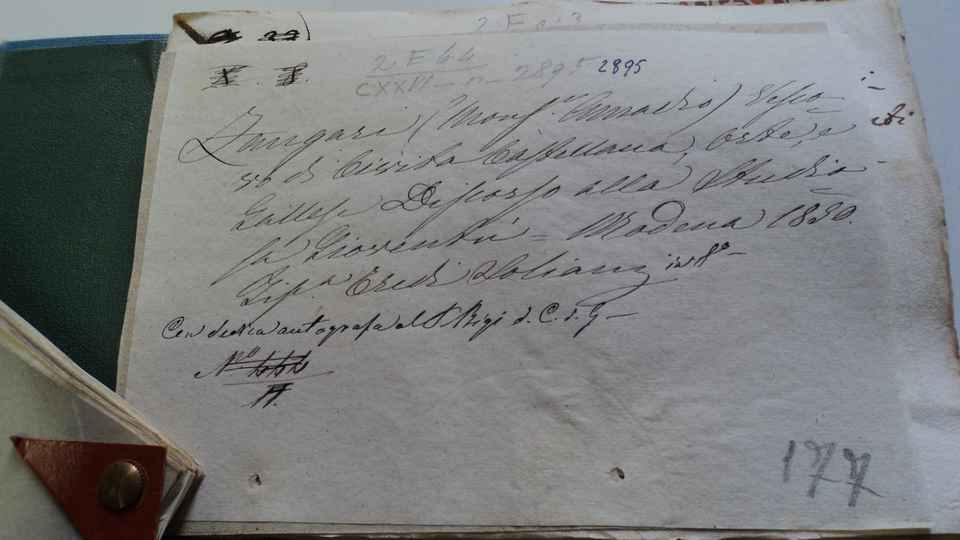 2 F n 3
2 F 64
CXXVI - n - 2895 2895
Zangari (Monsr. Amadio) Vesco-
vo di Civita Castellana, Orte, e
Gallese Discorso alla Studio-
sa Gioventù = Modena 1830.
Tipa. Eredi Soliani in 8o -
Con dedica autografa al P. Bigi d. C. d. G -
No 444
177